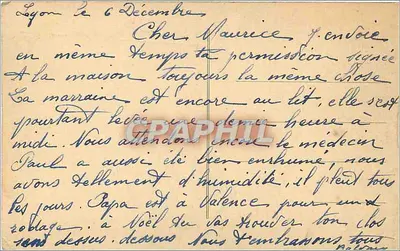 Lyon le 6 Décembre
Cher Maurice j'envoie
en même temps ta permission signée
A la maison toujours la meme chose
La marraine est encore au lit, elle s'est
pourtant levée une demie heure à
midi. Nous attendons encore le medecin
Paul a aussi été bien enrhumé, nous
avons tellement d'humidité, il pleut tous
les jours. Papa est à Valence pour un
rodage. à Noël tu vas trouver ton clos
sens dessus-dessous Nous t'embrassons tous
CPARPHIL